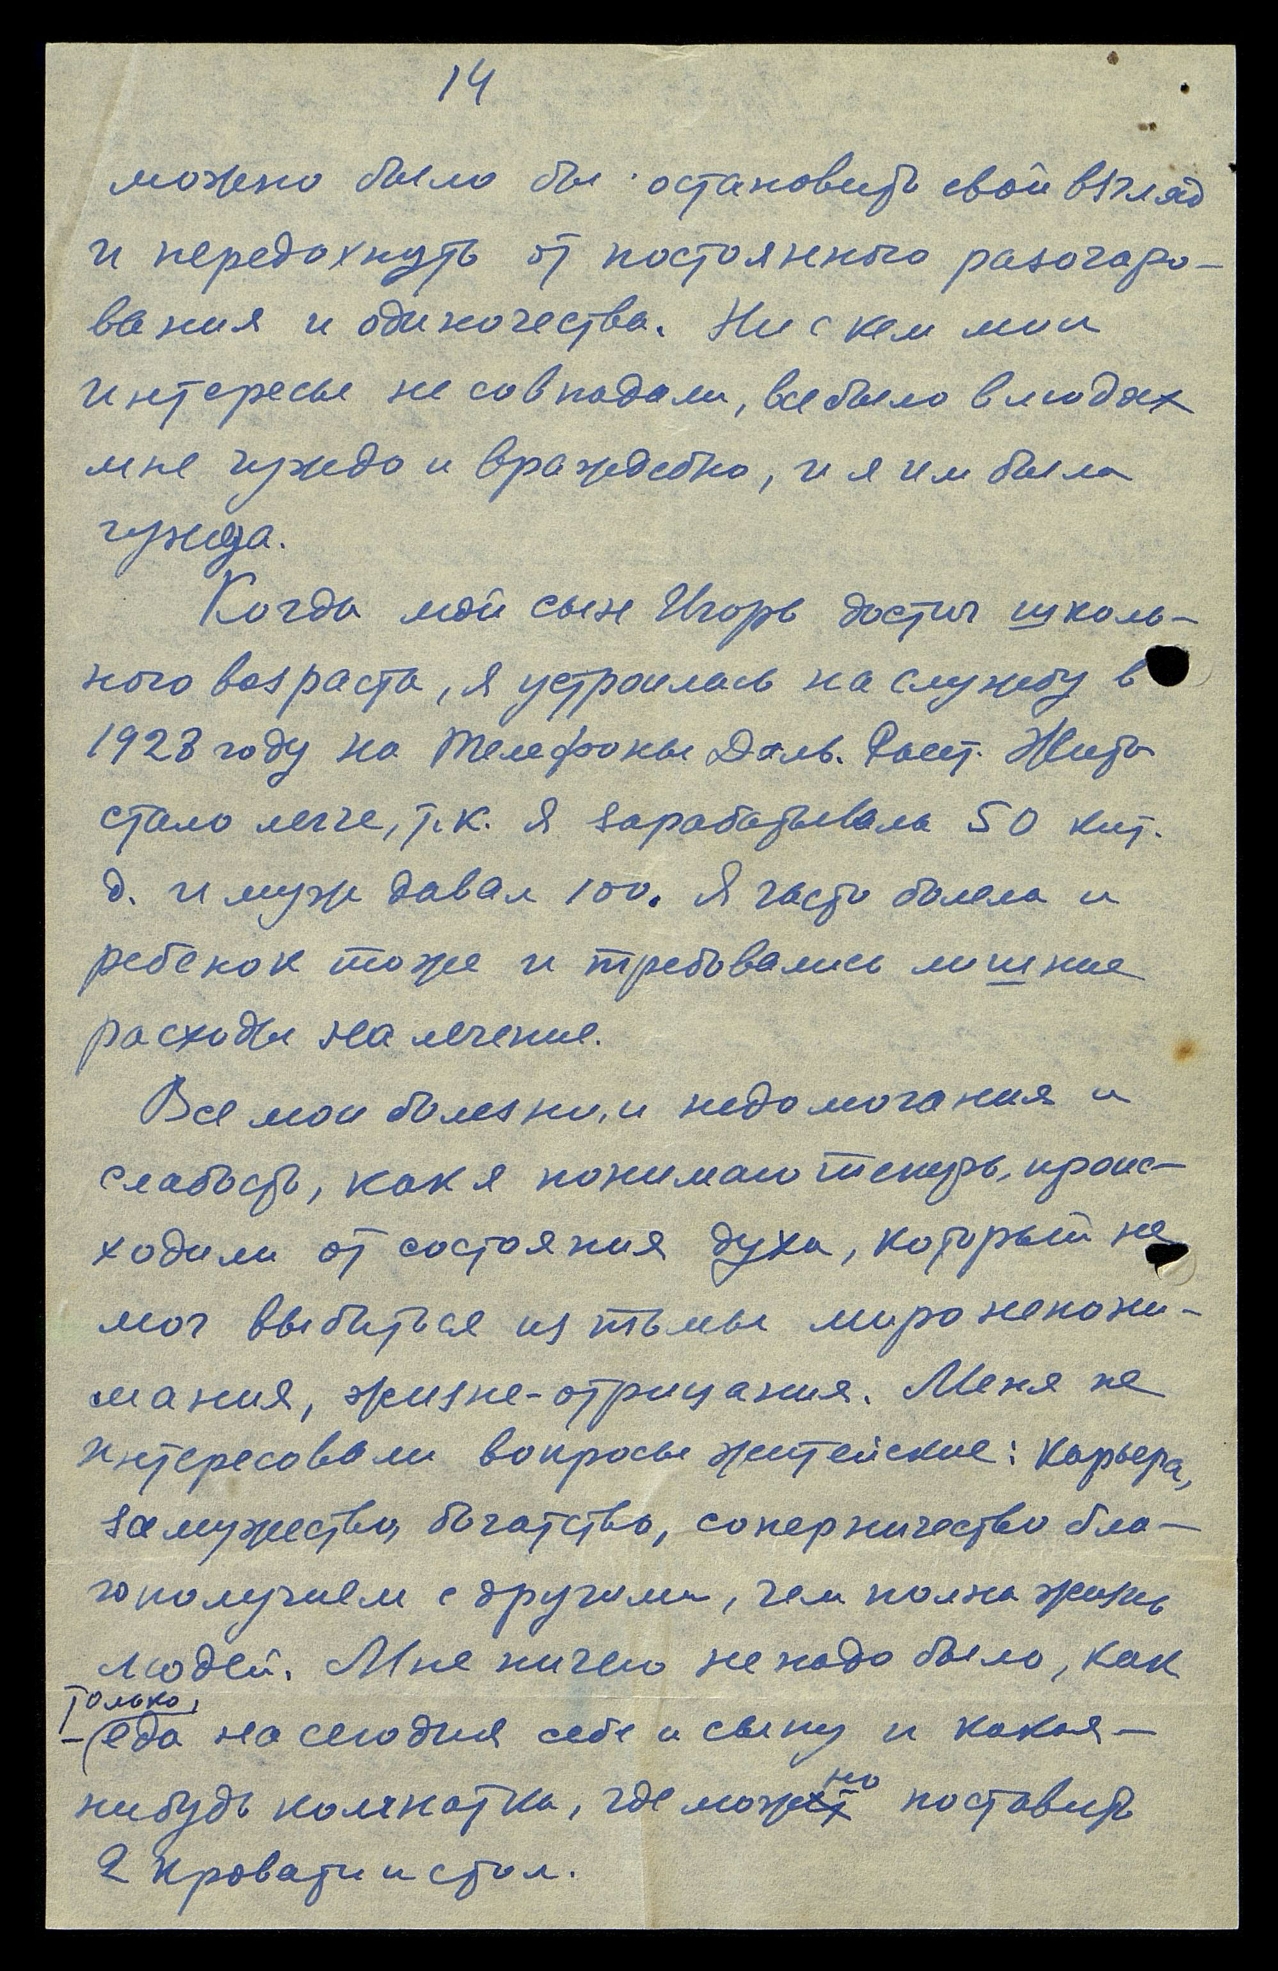 14
можно было бы остановить свой взгляд
и передохнуть от постоянного разочаро-
вания и одиночества. Ни с кем мои
интересы не совпадали, все было в людях
мне чуждо и враждебно, и я им была
чужда.
Когда мой сын Игорь достиг школь-
ного возраста, я устроилась на службу в
1928 году на Телефоны Даль. Вост. Жить
стало легче, т.к. я зарабатывала 50 кит.
д. и муж давал 100. Я часто болела и
ребенок тоже и требовались лишние
расходы на лечение.
Все мои болезни, и недомогания и
слабость, как я понимаю теперь, проис-
ходили от состояния духа, который не
мог выбиться из тьмы миро непони-
мания, жизне-отрицания. Меня не
интересовали вопросы житейские: карьера,
замужество, богатство, соперничество бла-
гополучием с другими, чем полна жизнь
людей. Мне ничего не надо было, как
только,
- еда на сегодня себе и сыну и какая-
нибудь комнатка, где можно поставить
2 кровати и стол.